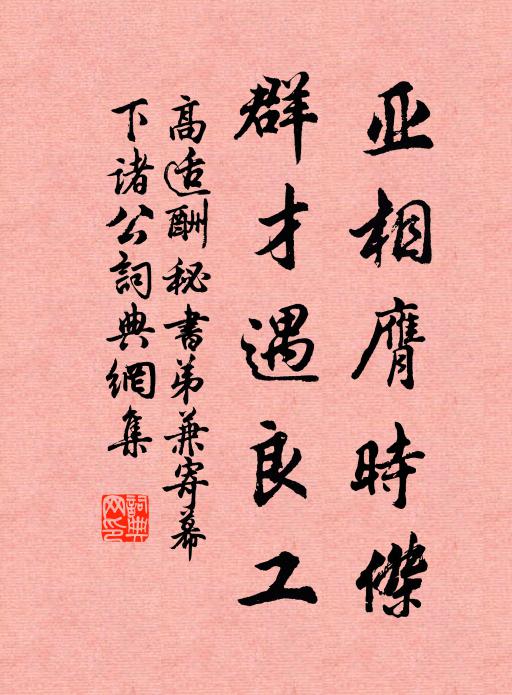 亚相膺時傑
群才遇良工
高适酬秘書弟兼寄幕
下诸公詞典網集
詞典
网印